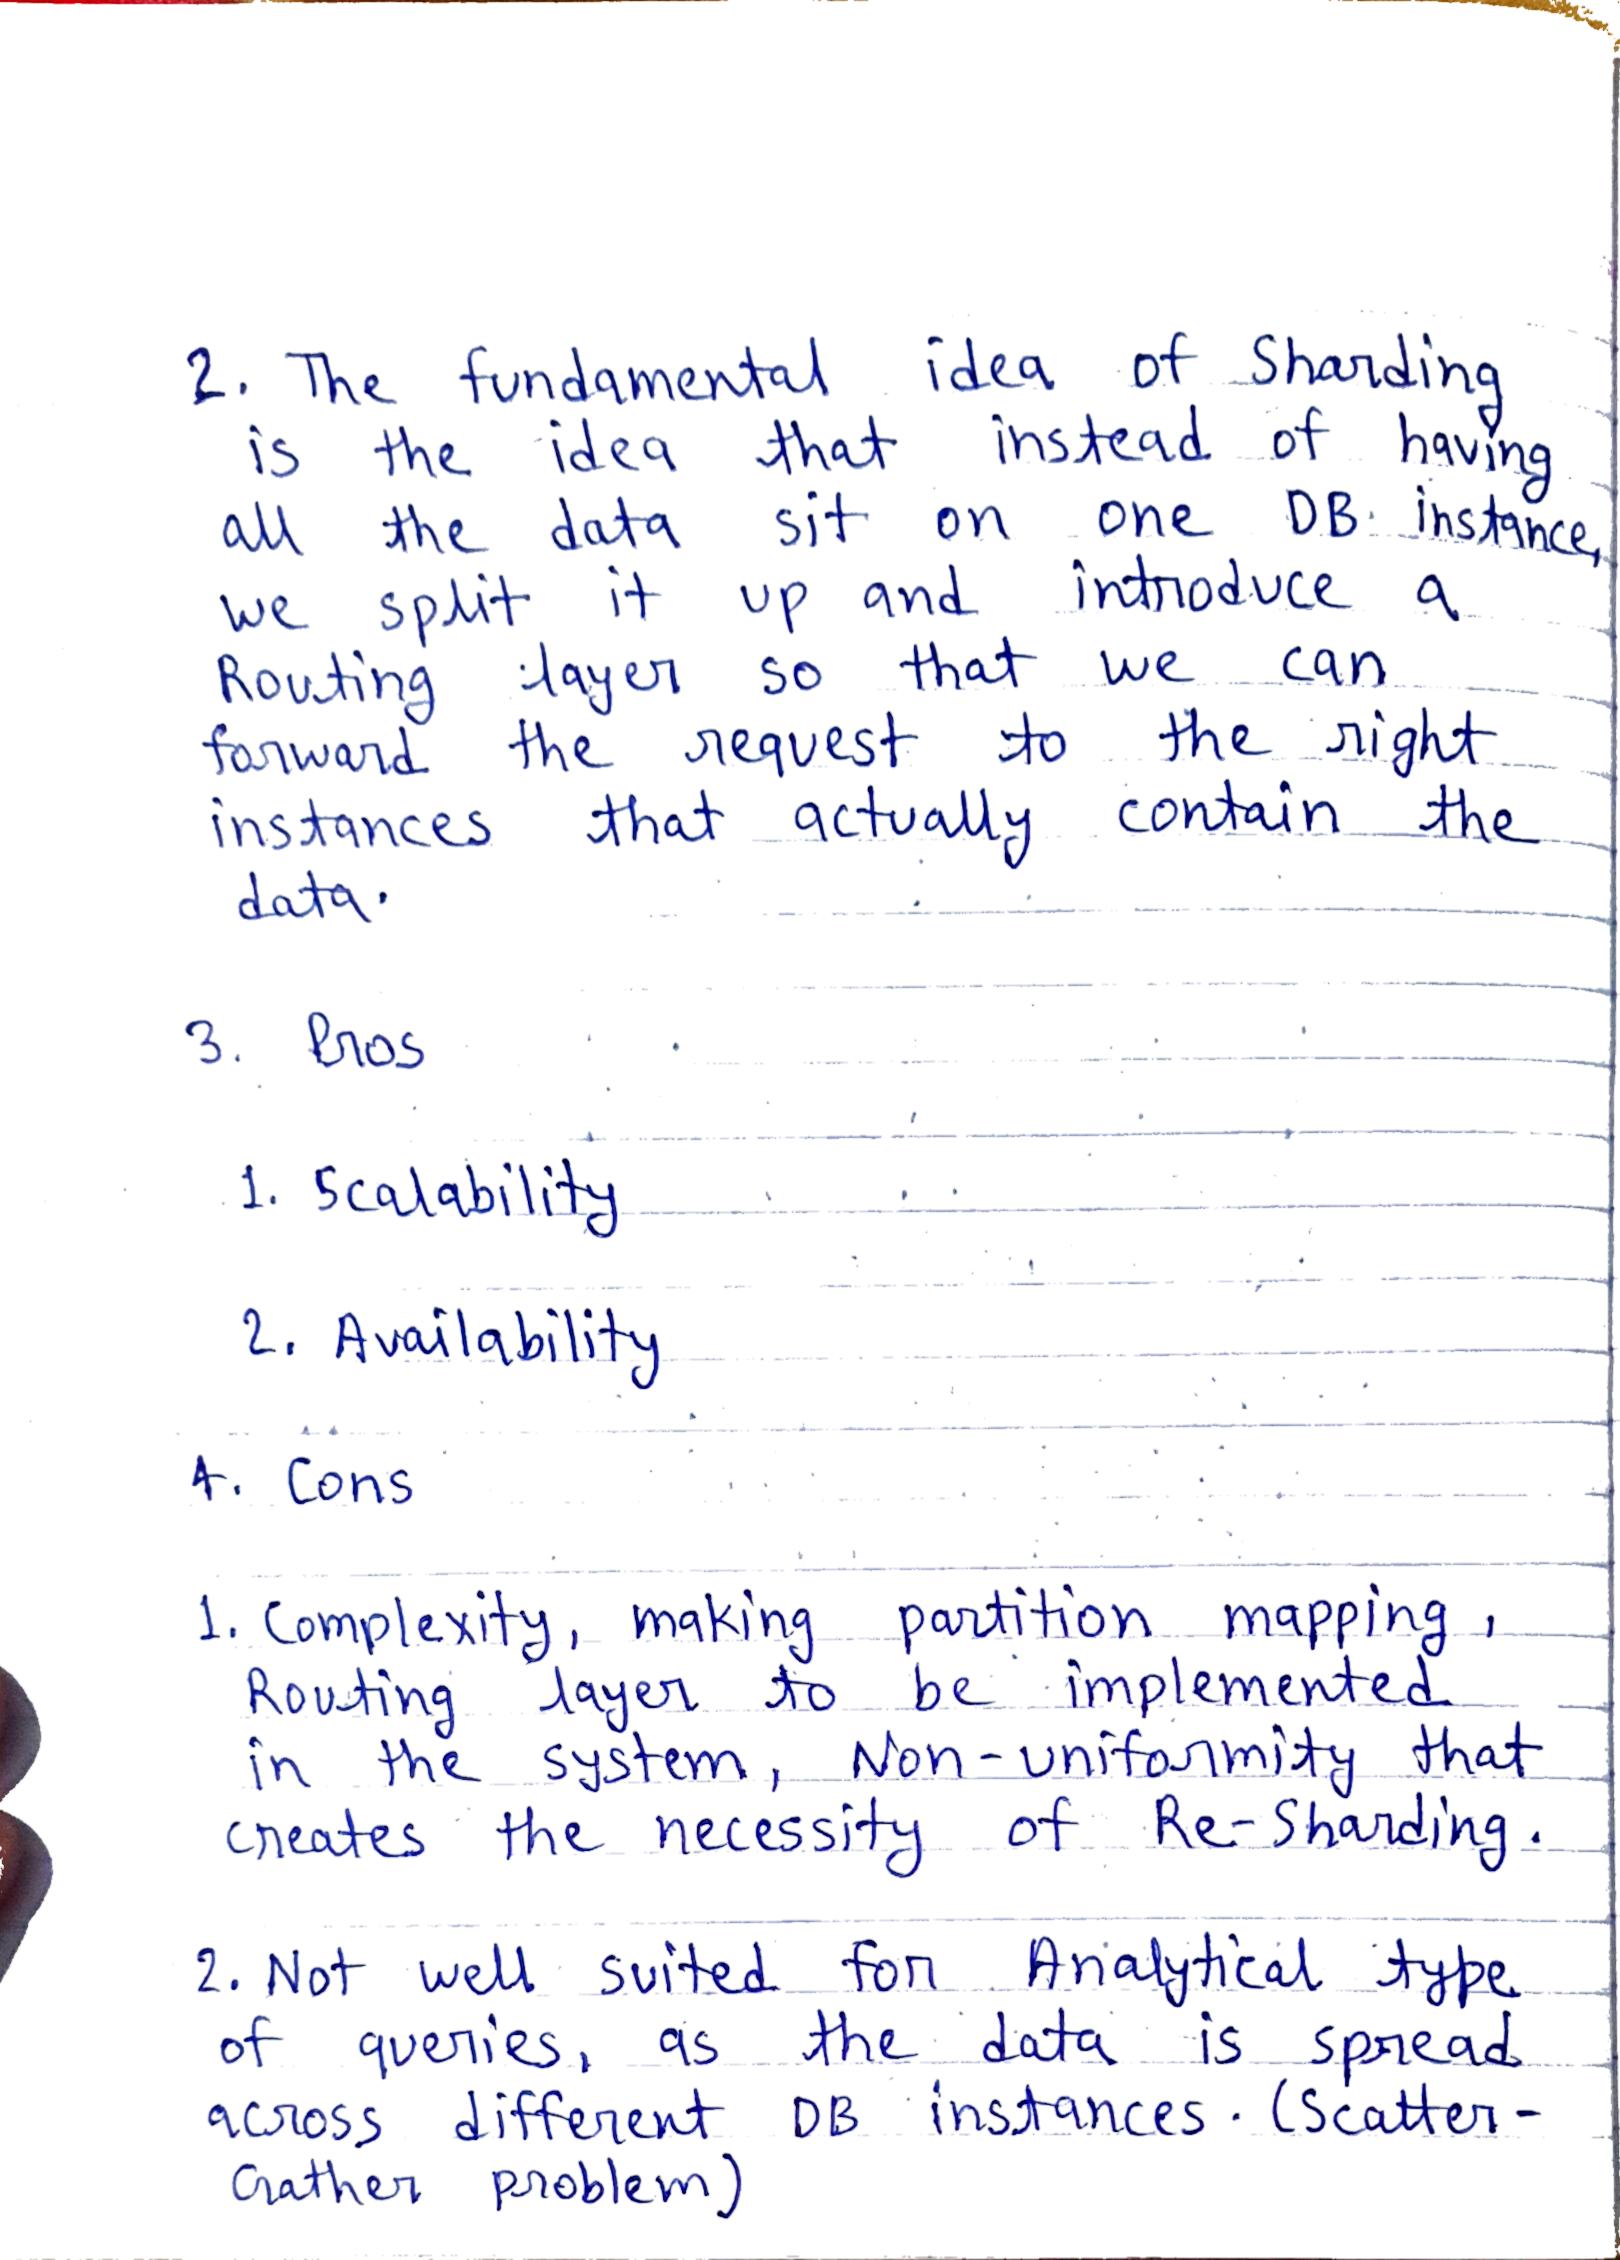 2. The fundamental idea of Sharding
is the idea that instead of having
all the data sit on one DB instance,
we split it up and introduce a
Routing layer so that we can
forward the request to the right
instances that actually contain the
data.
3. Pros
1. Scalability
2. Availability
4. Cons
1. Complexity, making partition mapping,
Routing layer to be implemented
in the system, Non-uniformity that
creates the necessity of Re-Sharding.
2. Not well suited for Analytical type
of queries, as the data is spread
across different DB instances. (Scatter-
Gather problem)